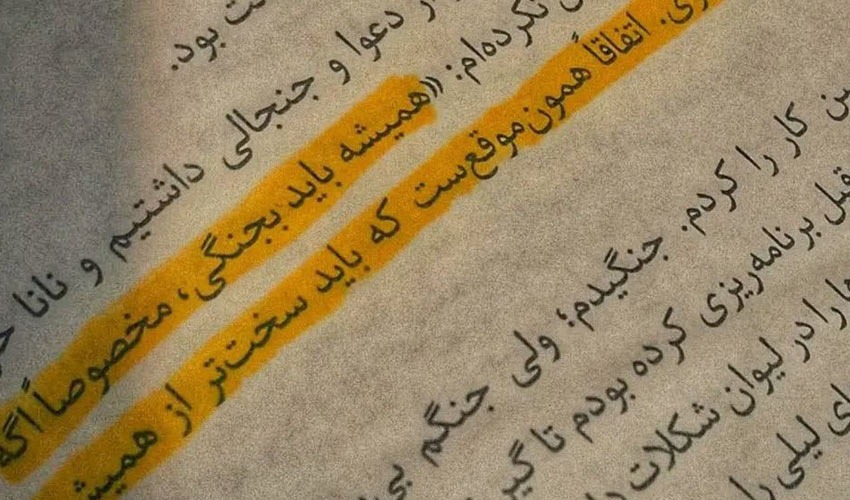 بود.
دعوا و جنجالی داشتیم و نانا
نکرده‌ام: «همیشه باید بجنگی، مخصوصاً اگه
اتفاقاً همون‌موقع‌ست که باید سخت‌تر از همیش
کار را کردم. جنگیدم؛ ولی جنگم
قبل برنامه‌ریزی کرده بودم تا گیر
را در لیوان شکلات
لیلی را